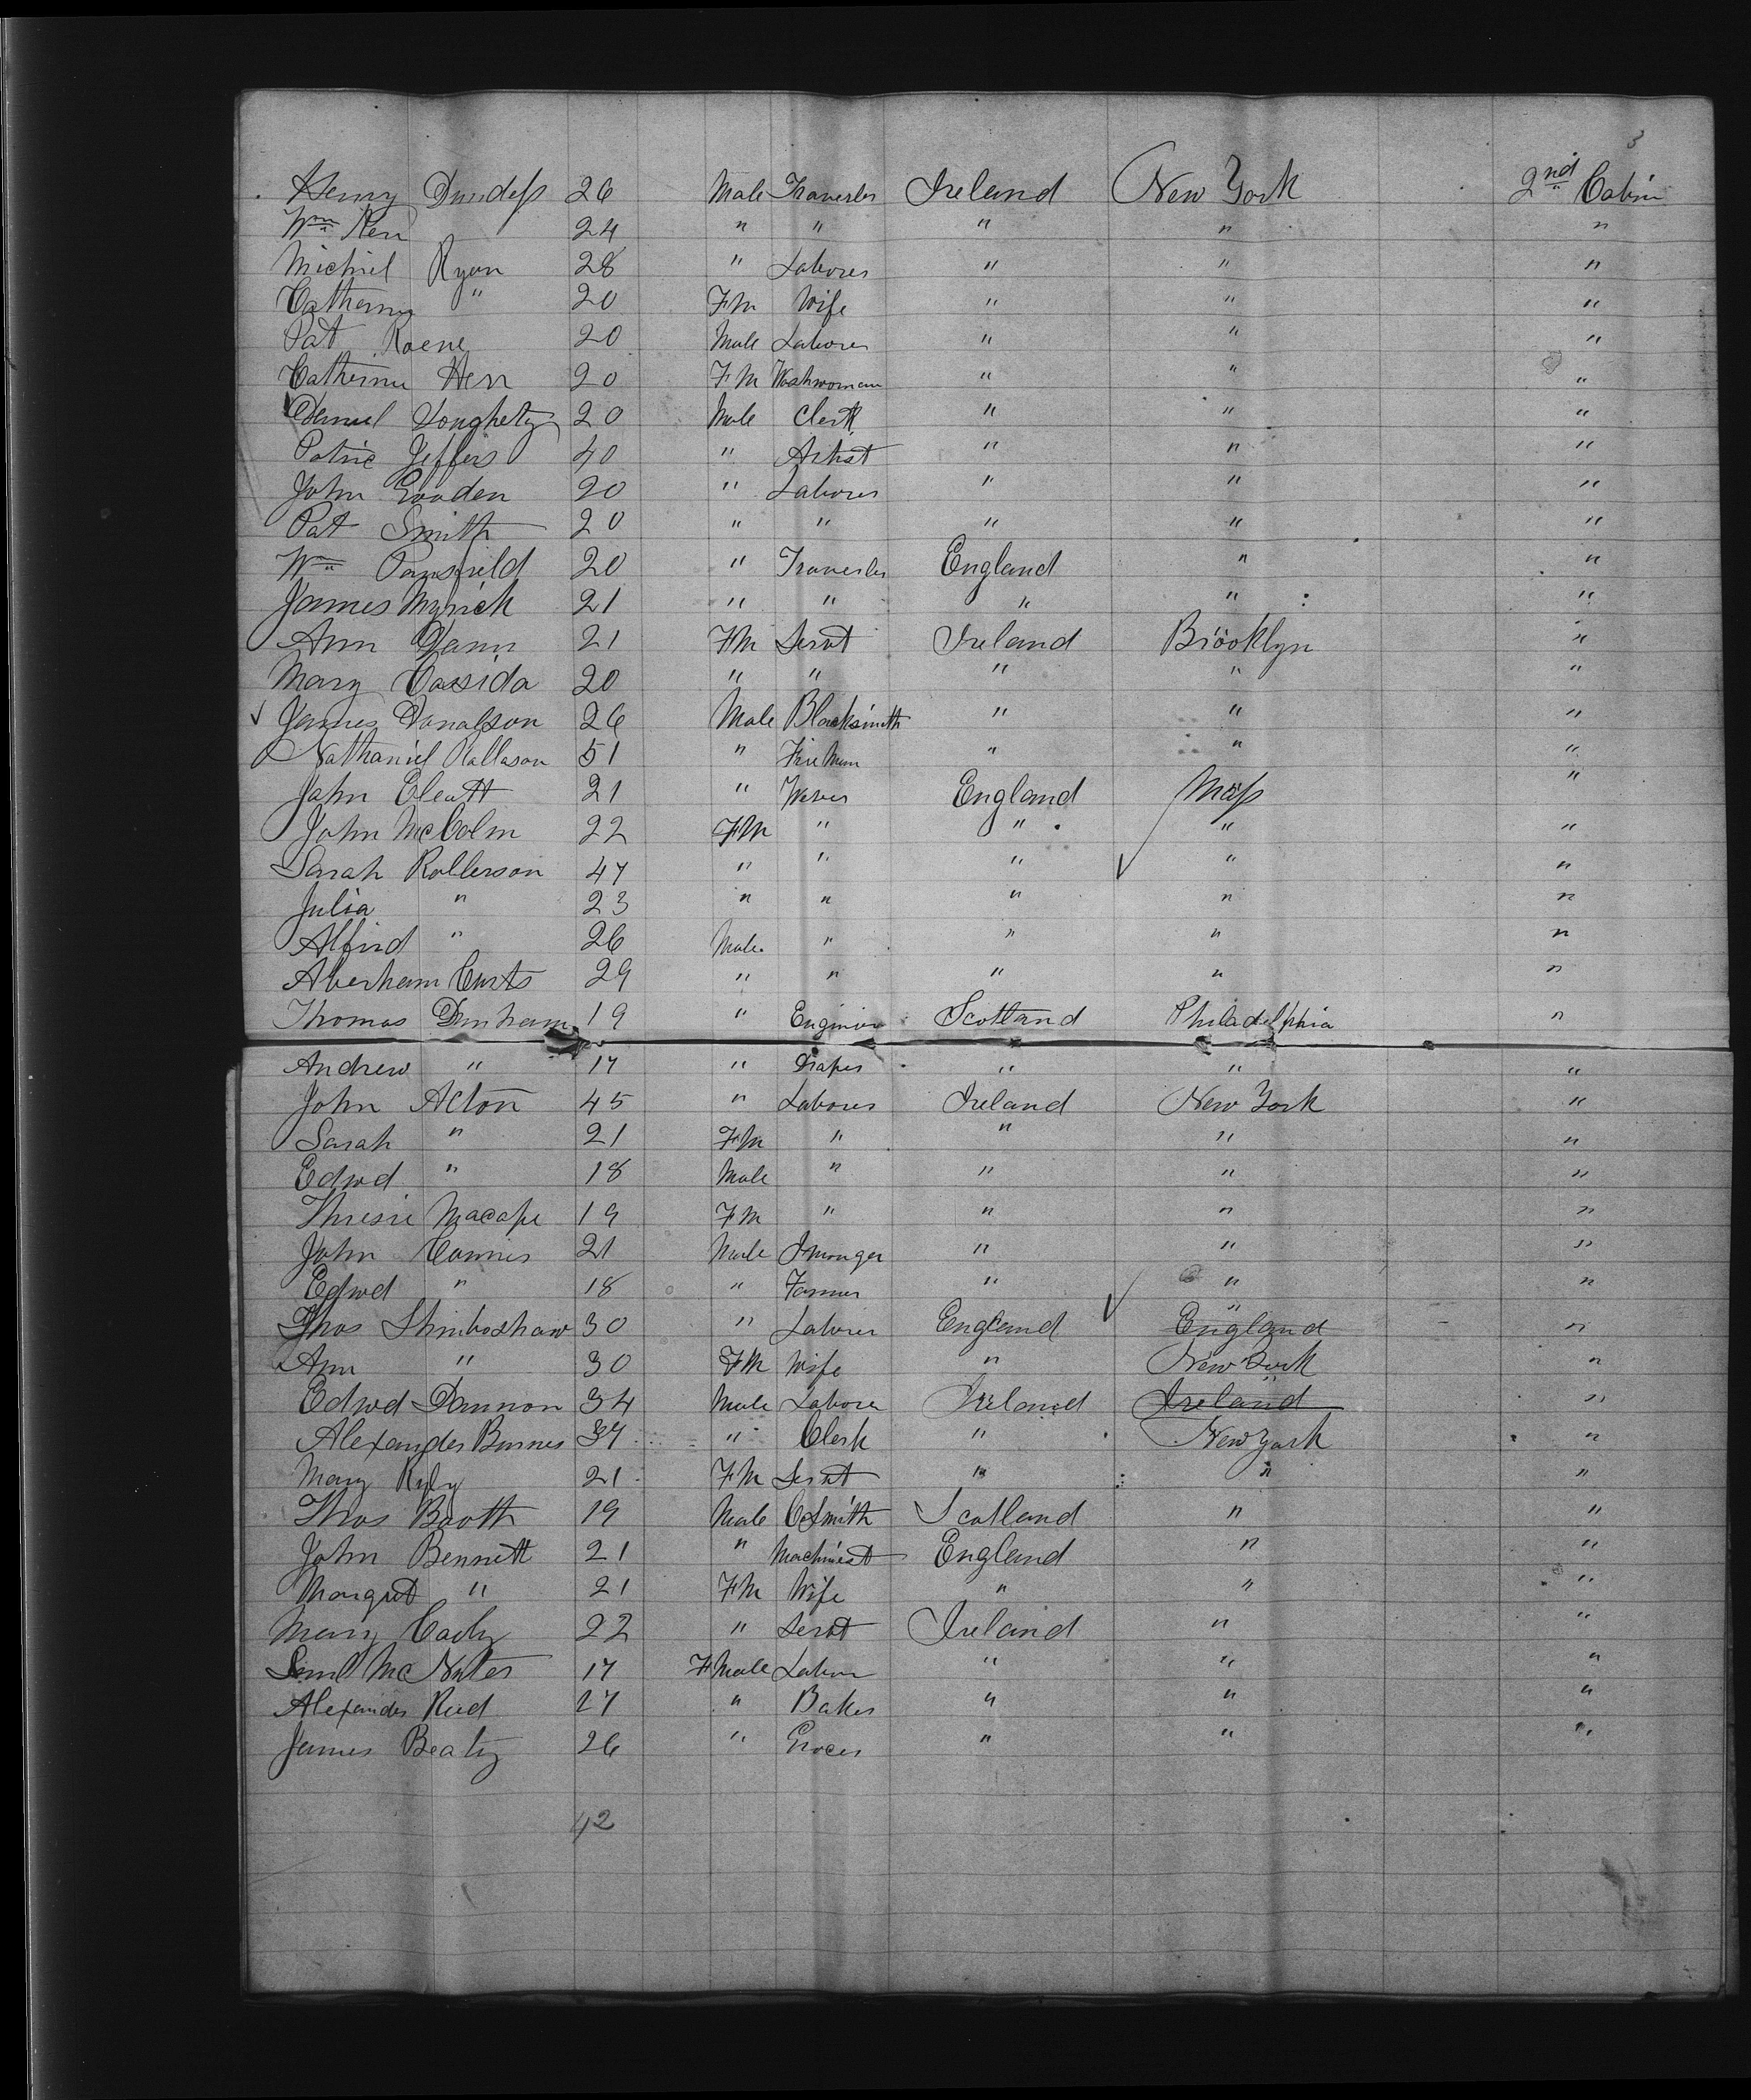 3
Henry Dundess 26 Male Traverler Ireland New York 2nd Cabin
Wm Kerr 24 " " " " "
Michiel Ryan 28 " Laborer " " "
Catherin " 20 FM Wife " " "
Pat Roene 20 Male Laborer " " "
Catherine Herr 20 FM Washwoman " " "
Daniel Loughety 20 Male Clerk " " "
Patric Jeffers 40 " Artist " " "
John Gooden 20 " Laborer " " "
Pat Smith 20 " " " " "
Wm Pansfield 20 " Traverler England " "
James Myrick 21 " " " " "
Ann Gann 21 FM Servt Ireland Brooklyn "
Mary Cassida 20 " " " " "
James Donalson 26 Male Blacksmith " " "
Nathaniel Rallason 51 " Fire Man " " "
John Cleatt 21 " Wever England Mass "
John McColm 22 FM " " " "
Sarah Rollerson 47 " " " " "
Julia " 23 " " " " "
Alfird " 26 Male " " " "
Aberham Curts 29 " " " " "
Thomas Dunham 19 " Enginier Scotland Philadelphia "
Andrew " 17 " Draper " " "
John Acton 45 " Laborer Ireland New York "
Sarah " 21 FM " " " "
Edwd " 18 Male " " " "
Thresie Macape 19 FM " " " "
John Connis 21 Male Imonger " " "
Edwd " 18 " Farmer " " "
Thos Shimboshaw 30 " Laborer England " England "
Ann " 30 FM Wife " New York "
Edwd Dannon 34 Male Labore Ireland " Ireland "
Alexander Burnes 37 " Clerk " New York "
Mary Ryly 21 FM Servt " " "
Thos Booth 19 Male CSmith Scotland " "
John Bennett 21 " Machinest England " "
Margret " 21 FM Wife " " "
Mary Cady 22 " Servt Ireland " "
Saml McNuter 17 FMale Labor " " "
Alexander Reed 27 " Baker " " "
James Beaty 26 " Grocer " " "
42